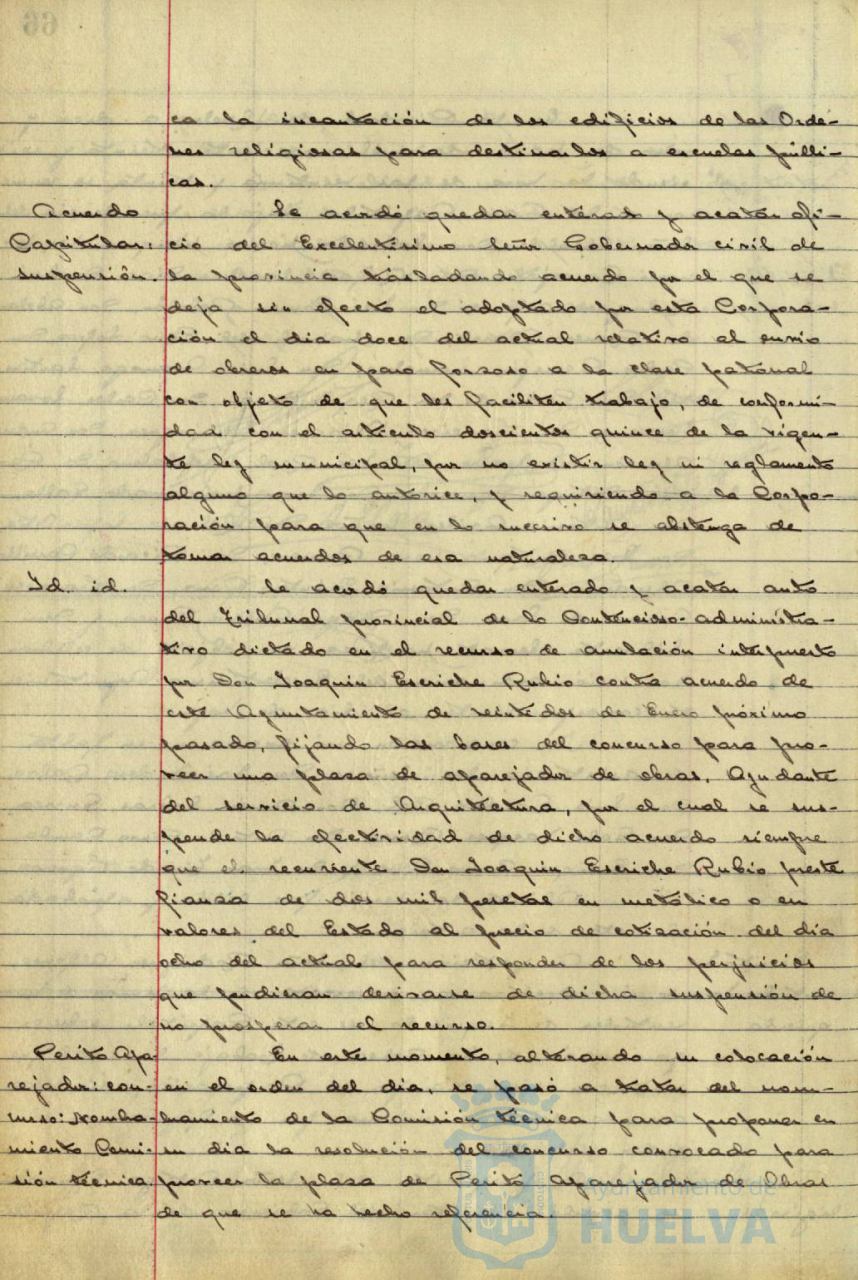 66
ca la incautación de los edificios de las Orde-
nes religiosas para destinarlos a escuelas públi-
cas.
Acuerdo
Capitular:
suspensión.
Se acordó quedar enterado y acatar ofi-
cio del Excelentísimo Señor Gobernador civil de
la provincia trasladando acuerdo por el que se
deja sin efecto el adoptado por esta Corpora-
ción el dia doce del actual relativo al envio
de obreros en paro forzoso a la clase patronal
con objeto de que les faciliten trabajo, de conformi-
dad con el articulo doscientos quince de la vigen-
te ley municipal, por no existir ley ni reglamento
alguno que lo autorice, y requiriendo a la Corpo-
ración para que en lo sucesivo se abstenga de
tomar acuerdos de esa naturaleza.
Id. id.
Se acordó quedar enterado y acatar auto
del Tribunal provincial de lo Contencioso-administra-
tivo dictado en el recurso de anulación interpuesto
por Don Joaquin Escriche Rubio contra acuerdo de
este Ayuntamiento de veintidos de Enero próximo
pasado, fijando las bases del concurso para pro-
veer una plaza de aparejador de obras, Ayudante
del servicio de Arquitectura, por el cual se sus-
pende la efectividad de dicho acuerdo siempre
que el recurriente Don Joaquin Escriche Rubio preste
fianza de dos mil pesetas en metálico o en
valores del Estado al precio de cotización del dia
ocho del actual para responder de los perjuicios
que pudieran derivarse de dicha suspensión de
no prosperar el recurso.
Perito Apa-
rejador: con-
curso: Nombra-
miento Comi-
sión técnica.
En este momento, alterando su colocación
en el orden del dia, se pasó a tratar del nom-
bramiento de la Comisión técnica para proponer en
su dia la resolución del concurso convocado para
proveer la plaza de Perito aparejador de Obras
de que se ha hecho referencia.
Ayuntamiento de
HUELVA